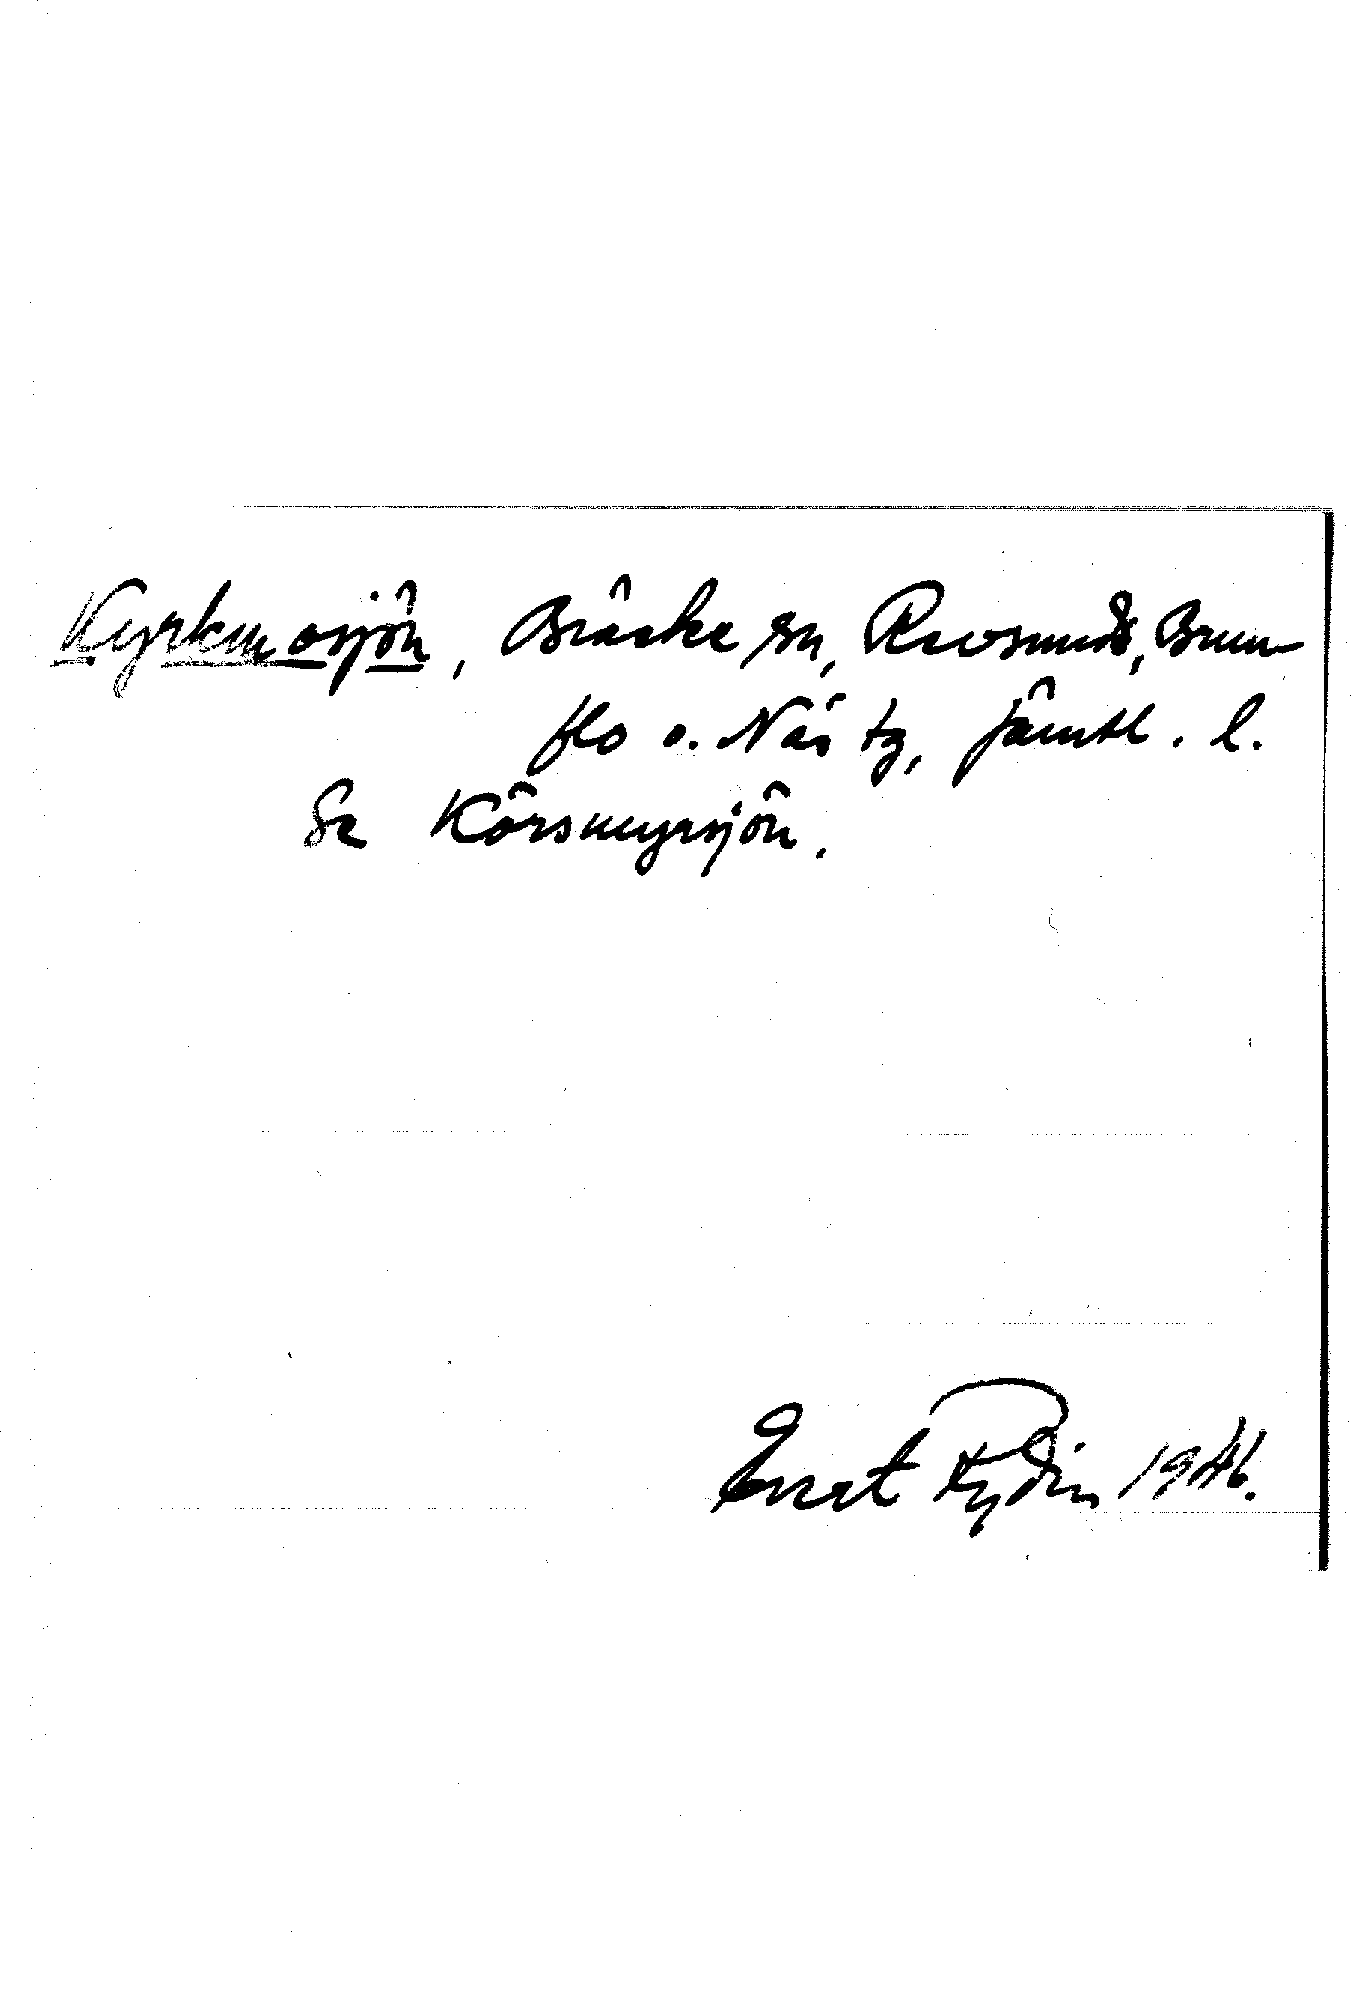 Kyrkmosjön, Bräcke sn, Revsunds, Brun-
flo o. Näs tg, Jämtl. l.
Se Körsmyrsjön.
Ernst Rydin 1946.